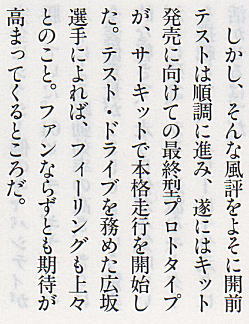 しかし、そんな風評をよそに開前
テストは順調に進み、遂にはキット
発売に向けての最終型プロトタイプ
が、サーキットで本格走行を開始し
た。テスト・ドライブを務めた広坂
選手によれば、フィーリングも上々
とのこと。ファンならずとも期待が
高まってくるところだ。